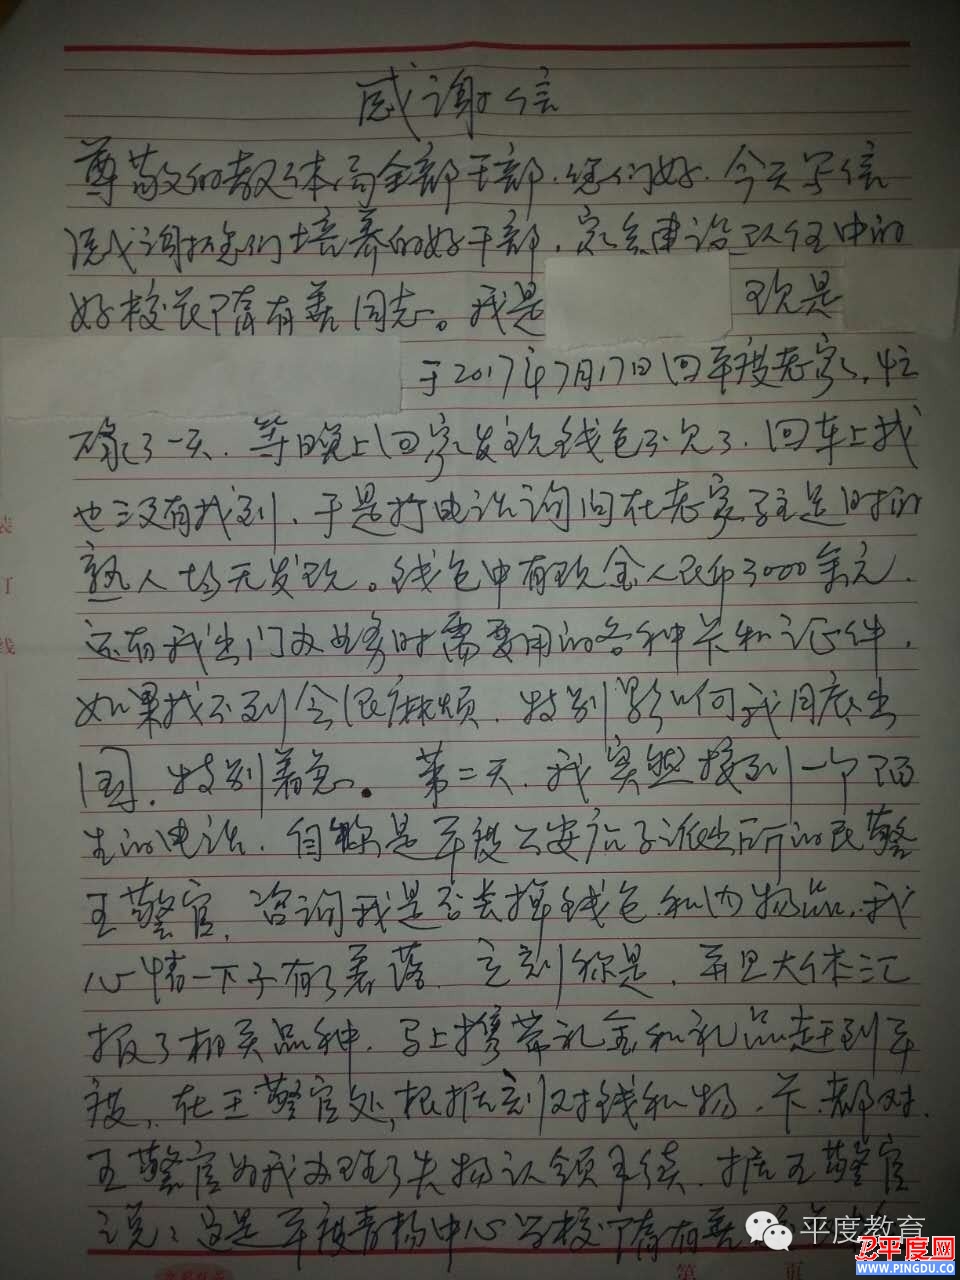 感谢信
尊敬的教体局全部干部，您们好，今天写信
感谢您们培养的好干部，
好校长隋有善同志。我是 现是
于2017年7月17日回平度老家，忙
碌了一天，等晚上回家发现钱包不见了，回车上找
也没有找到，于是打电话询问在老家 时的
熟人均无发现。钱包中有现金人民币3000余元，
还有我出门办业务时需要用的各种卡和证件，
如果找不到会很麻烦，特别影响我月底出
国，特别着急。第二天，我突然接到一个陌
生的电话，自称是平度公安 子派出所的民警
王警官，咨询我是否丢掉钱包和内物品，我
心情一下子有了着落，立刻称是，并且大体汇
报了相关品种，马上携带礼金和礼品赶到平
度，在王警官处，根据 对钱和物、卡都对，
王警官为我办理了失物认领手续，据王警官
说：这是平度青杨中心学校隋有善
装
订
线
平度教育
平度网
WWW.PINGDU.CC
第 页